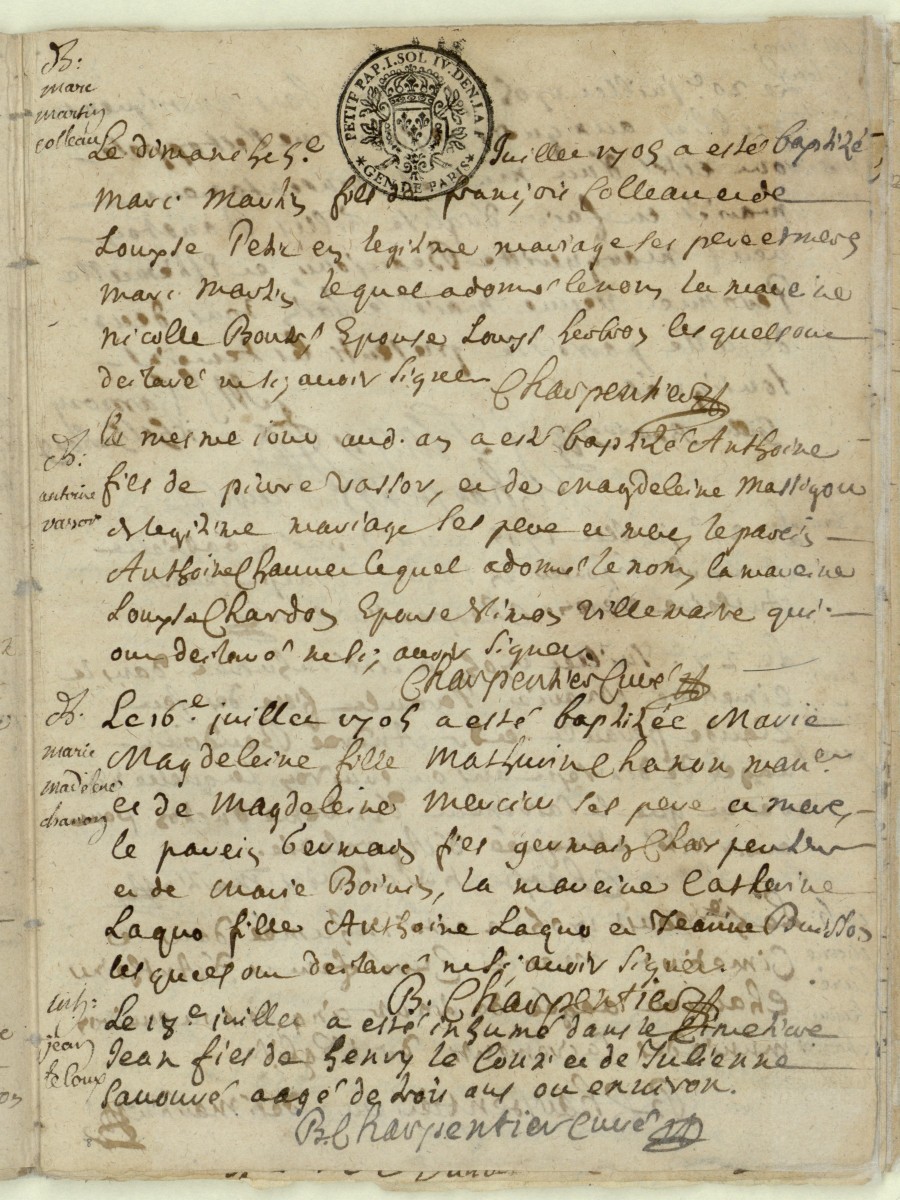 B:
marc
martin
colleau
PETIT PAP. I. SOL IV. DEN. LA F.
GEN. DE PARIS
Le dimanche 5e Juillet 1705 a esté baptizé
Marc Martin fils de françois Colleau et de
Louyse Petit en legitime mariage ses pere et mere
Marc Martin lequel a donné le nom, la mareine
Nicolle Epouse Louys lesquels ont
declaré ne sçavoir signer Charpentier
Le mesme jour aud. an a esté baptizé Anthoine
B:
antoine
vassor
fils de pierre Vassor, et de Magdeleine Massigou
legitime mariage ses pere et mere, le parein
Anthoine Chauvet lequel a donné le nom, la mareine
Louyse Chardon Epouse Simon Villenaive qui
ont declaré ne sçavoir signer.
Charpentier Curé
B.
marie
madelene
charon
Le 16e juillet 1705 a esté baptizée Marie
Magdeleine fille Mathurin Chanon man.er
et de Magdeleine Mercier ses pere et mere,
le parein Germain fils germain Charpentier
et de Marie Boivin, la mareine Catherine
Laquo fille Anthoine Laquo et Jeanne Buisson
lesquels ont declaré ne sçavoir signer.
B. Charpentier
inh:
jean
le loup
Le 18e juillet a esté inhumé dans le Cimetiere
Jean fils de henry le Loup et de Julienne
Savouré aagé de trois ans ou environ.
B. Charpentier Curé